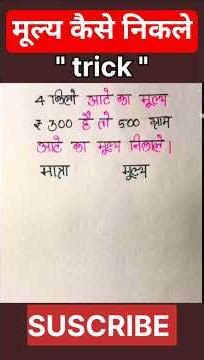 मूल्य कैसे निकले
" trick "
4 किलो आटे का मूल्य
₹ 300 है तो 500 ग्राम
आटे का मूल्य निकाले |
मात्रा मूल्य
SUSCRIBE